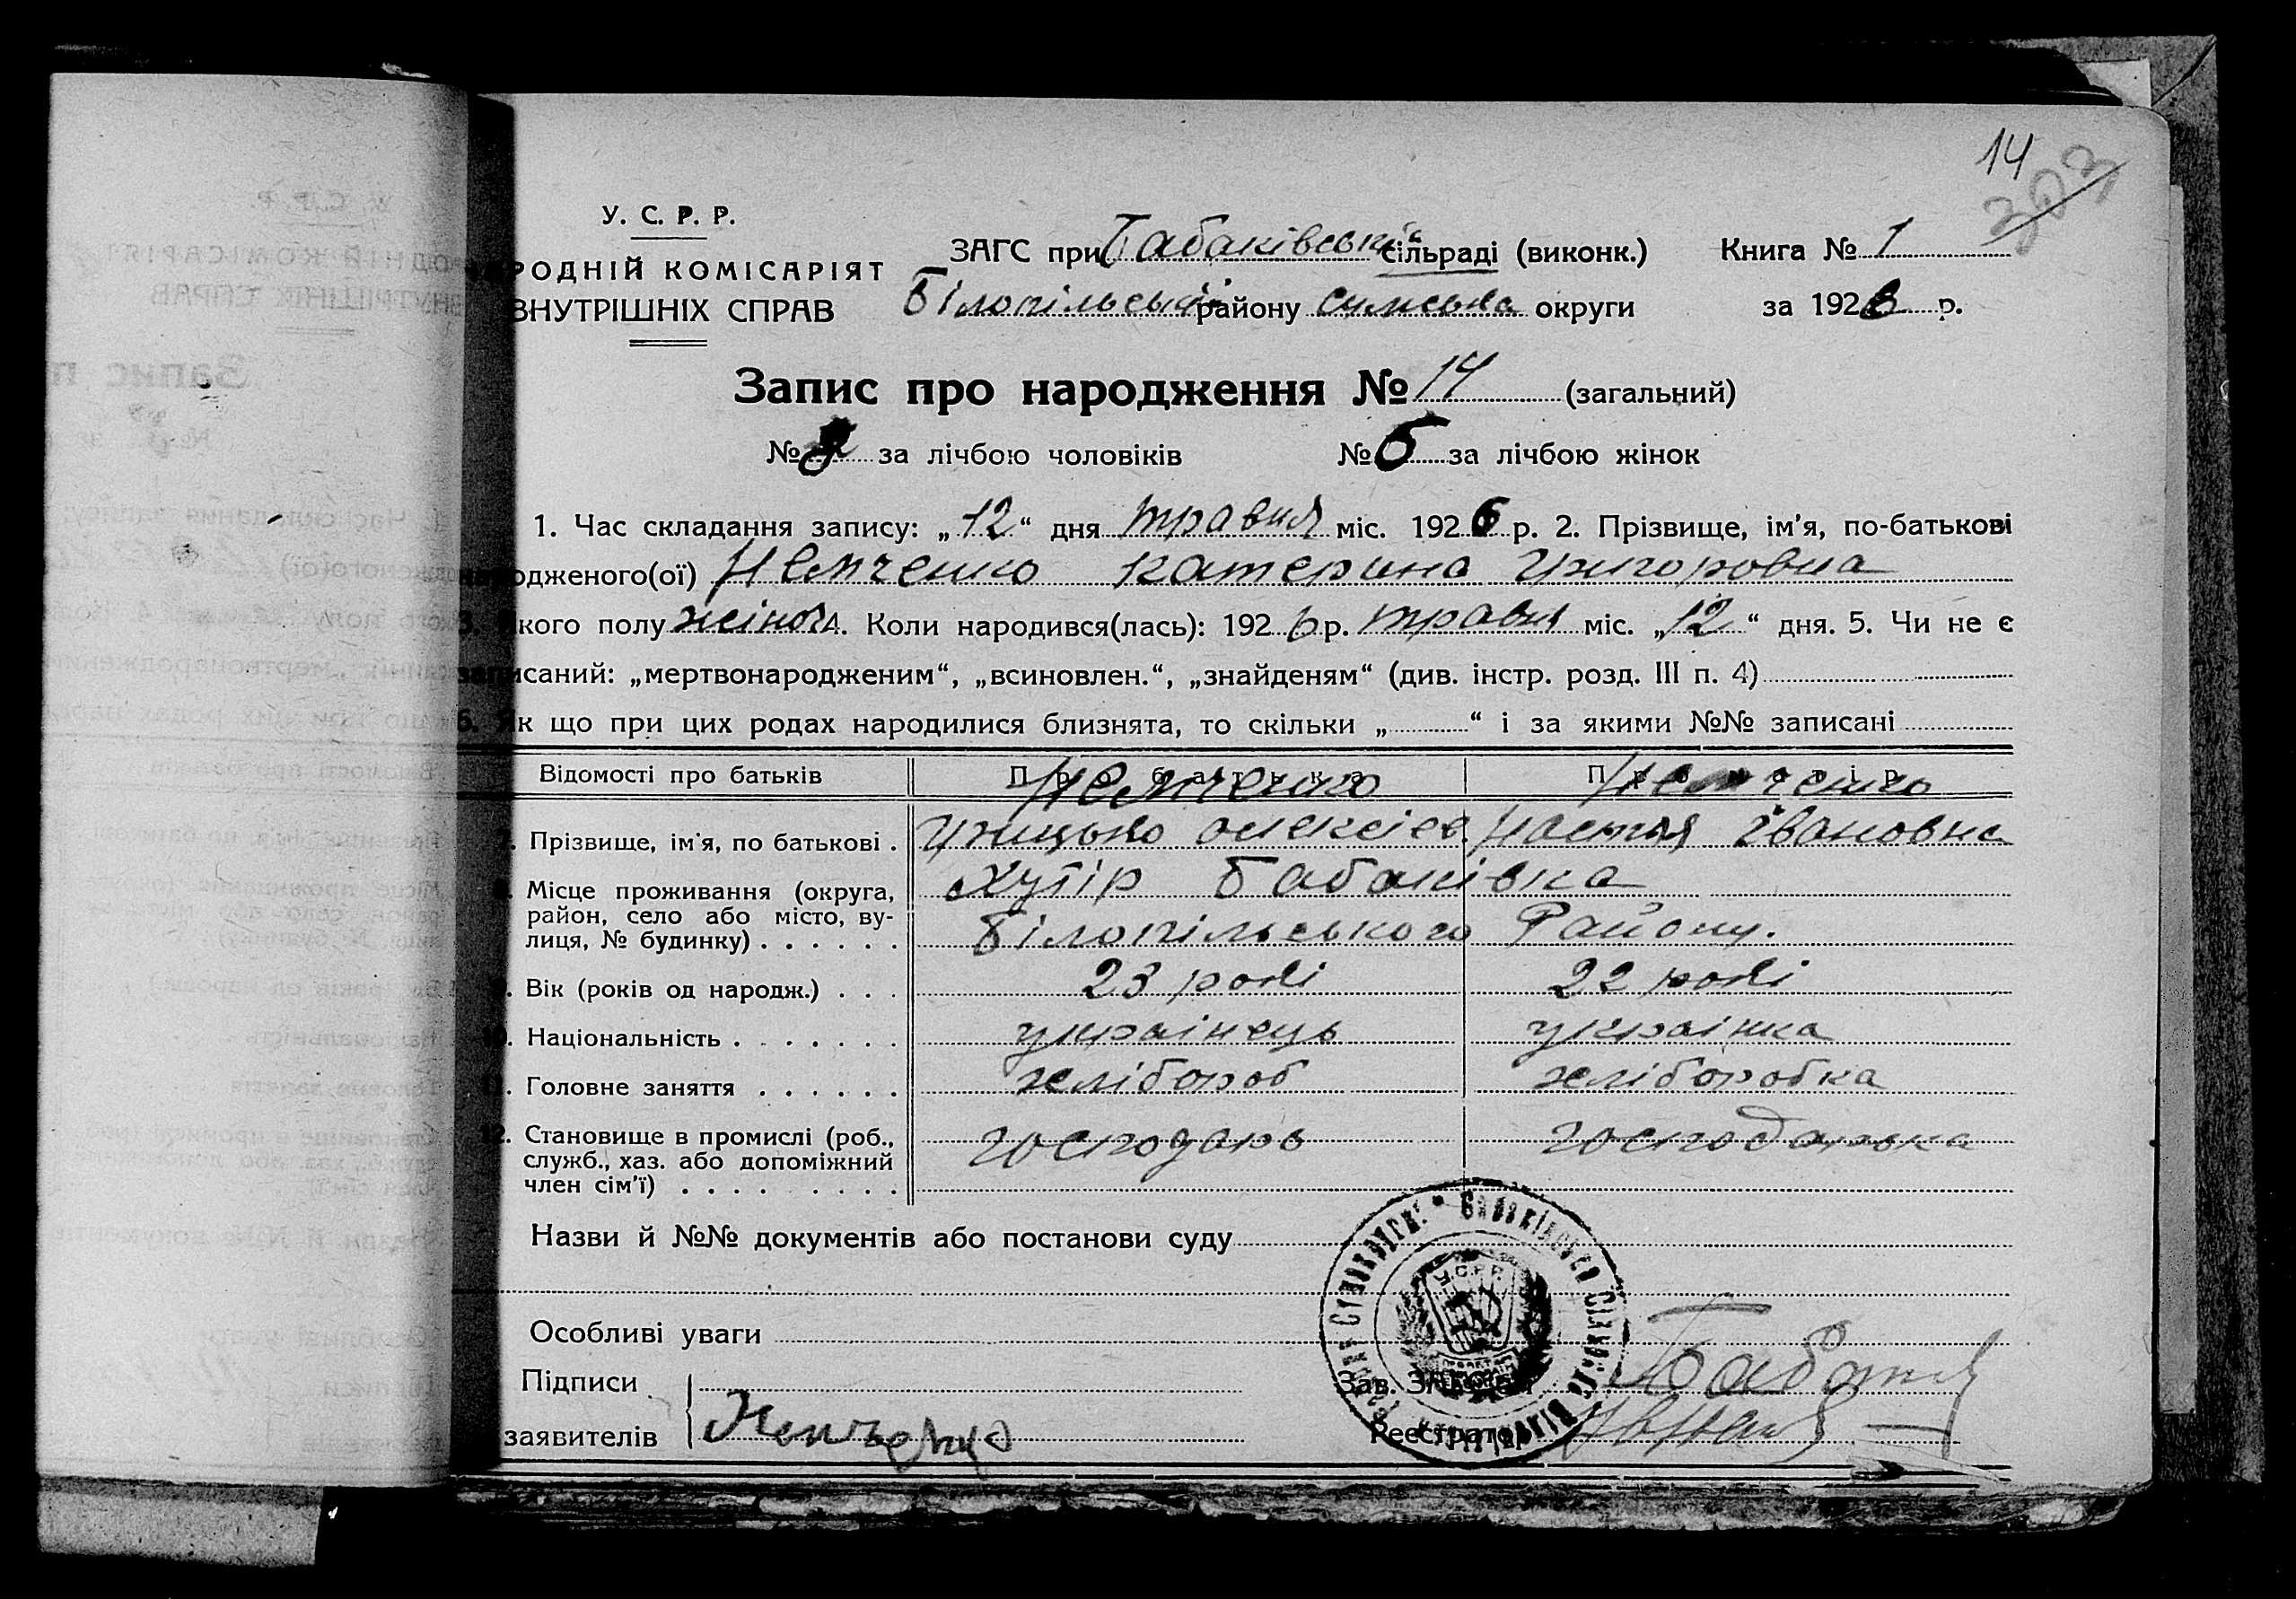 14
303
У. С. Р. Р.
РОДНІЙ КОМІСАРІЯТ
ВНУТРІШНІХ СПРАВ
ЗАГС при Бабаківській сільраді (виконк.) Книга № 1
Білопільськ району Сумська округи за 1926 р.
Запис про народження № 14 (загальний)
№ за лічбою чоловіків № 5 за лічбою жінок
1. Час складання запису: „12“ дня травня міс. 1926 р. 2. Прізвище, ім’я, по-батькові
одженого(ої) Немченко Катерина Григоровна
3. Якого полу жіноч 4. Коли народився(лась): 1926 р. травня міс. „12“ дня. 5. Чи не є
записаний: „мертвонародженим“, „всиновлен.“, „знайденям“ (див. інстр. розд. III п. 4)
6. Як що при цих родах народилися близнята, то скільки „ “ і за якими №№ записані
Відомості про батьків Про батька Про матір
Немченко Немченко
7. Прізвище, ім’я, по батькові . Грицько Олексієв. Настя Івановна
8. Місце проживання (округа, Хутір Бабаківка
район, село або місто, ву-
лиця, № будинку) . . . . . . Білопільського Району.
9. Вік (років од народж.) . . . 23 рокі 22 рокі
10. Національність . . . . . . . українець українка
11. Головне заняття . . . . . . хлібороб хліборобка
12. Становище в промислі (роб., господарь господарька
служб., хаз. або допоміжний
член сім’ї) . . . . . . . .
Назви й №№ документів або постанови суду
Особливі уваги
Підписи
Зав. ЗАГСом
заявителів Немченко
Реєстратор
У.С.Р.Р.
Бабаківська Сільська